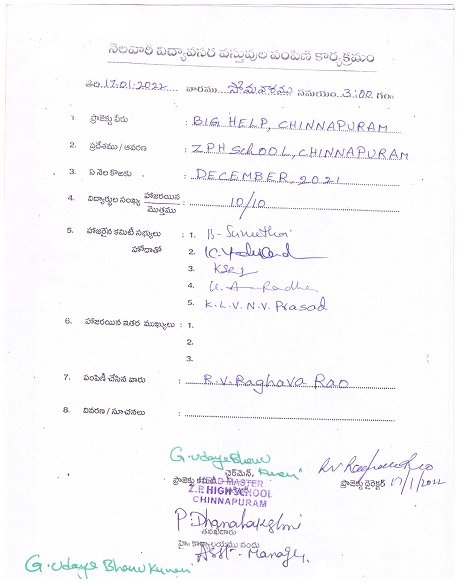 నెలవారీ విద్యావసర వస్తువుల పంపిణీ కార్యక్రమం
తేది. 17.01.2022 వారము సోమవారము సమయం 3:00 గం
1. ప్రాజెక్టు పేరు : BIG HELP, CHINNAPURAM
2. ప్రదేశము / ఆవరణ : ZPH School, CHINNAPURAM
3. ఏ నెల కొఱకు : DECEMBER, 2021
4. విద్యార్థుల సంఖ్య హాజరయిన / మొత్తము : 10/10
5. హాజరైన కమిటీ సభ్యులు : 1. B. Suneetha
హోదాతో 2.
3.
4. Radha
5. K.L.V.N.V. Prasad
6. హాజరయిన ఇతర ముఖ్యులు : 1.
2.
3.
7. పంపిణీ చేసిన వారు : R.V. Raghava Rao
8. వివరణ / సూచనలు :
G. Udaya Bhanu Kumari
చైర్‌మెన్,
ప్రాజెక్టు కమిటీ
HEAD MASTER
Z.P. HIGH SCHOOL
CHINNAPURAM
RV Raghava Rao
ప్రాజెక్టు డైరెక్టర్ 17/1/2022
P. Dhanalakshmi
తనిఖీదారు
హై. కార్యాలయము నందు
Asst. Manager
G. Udaya Bhanu Kumari